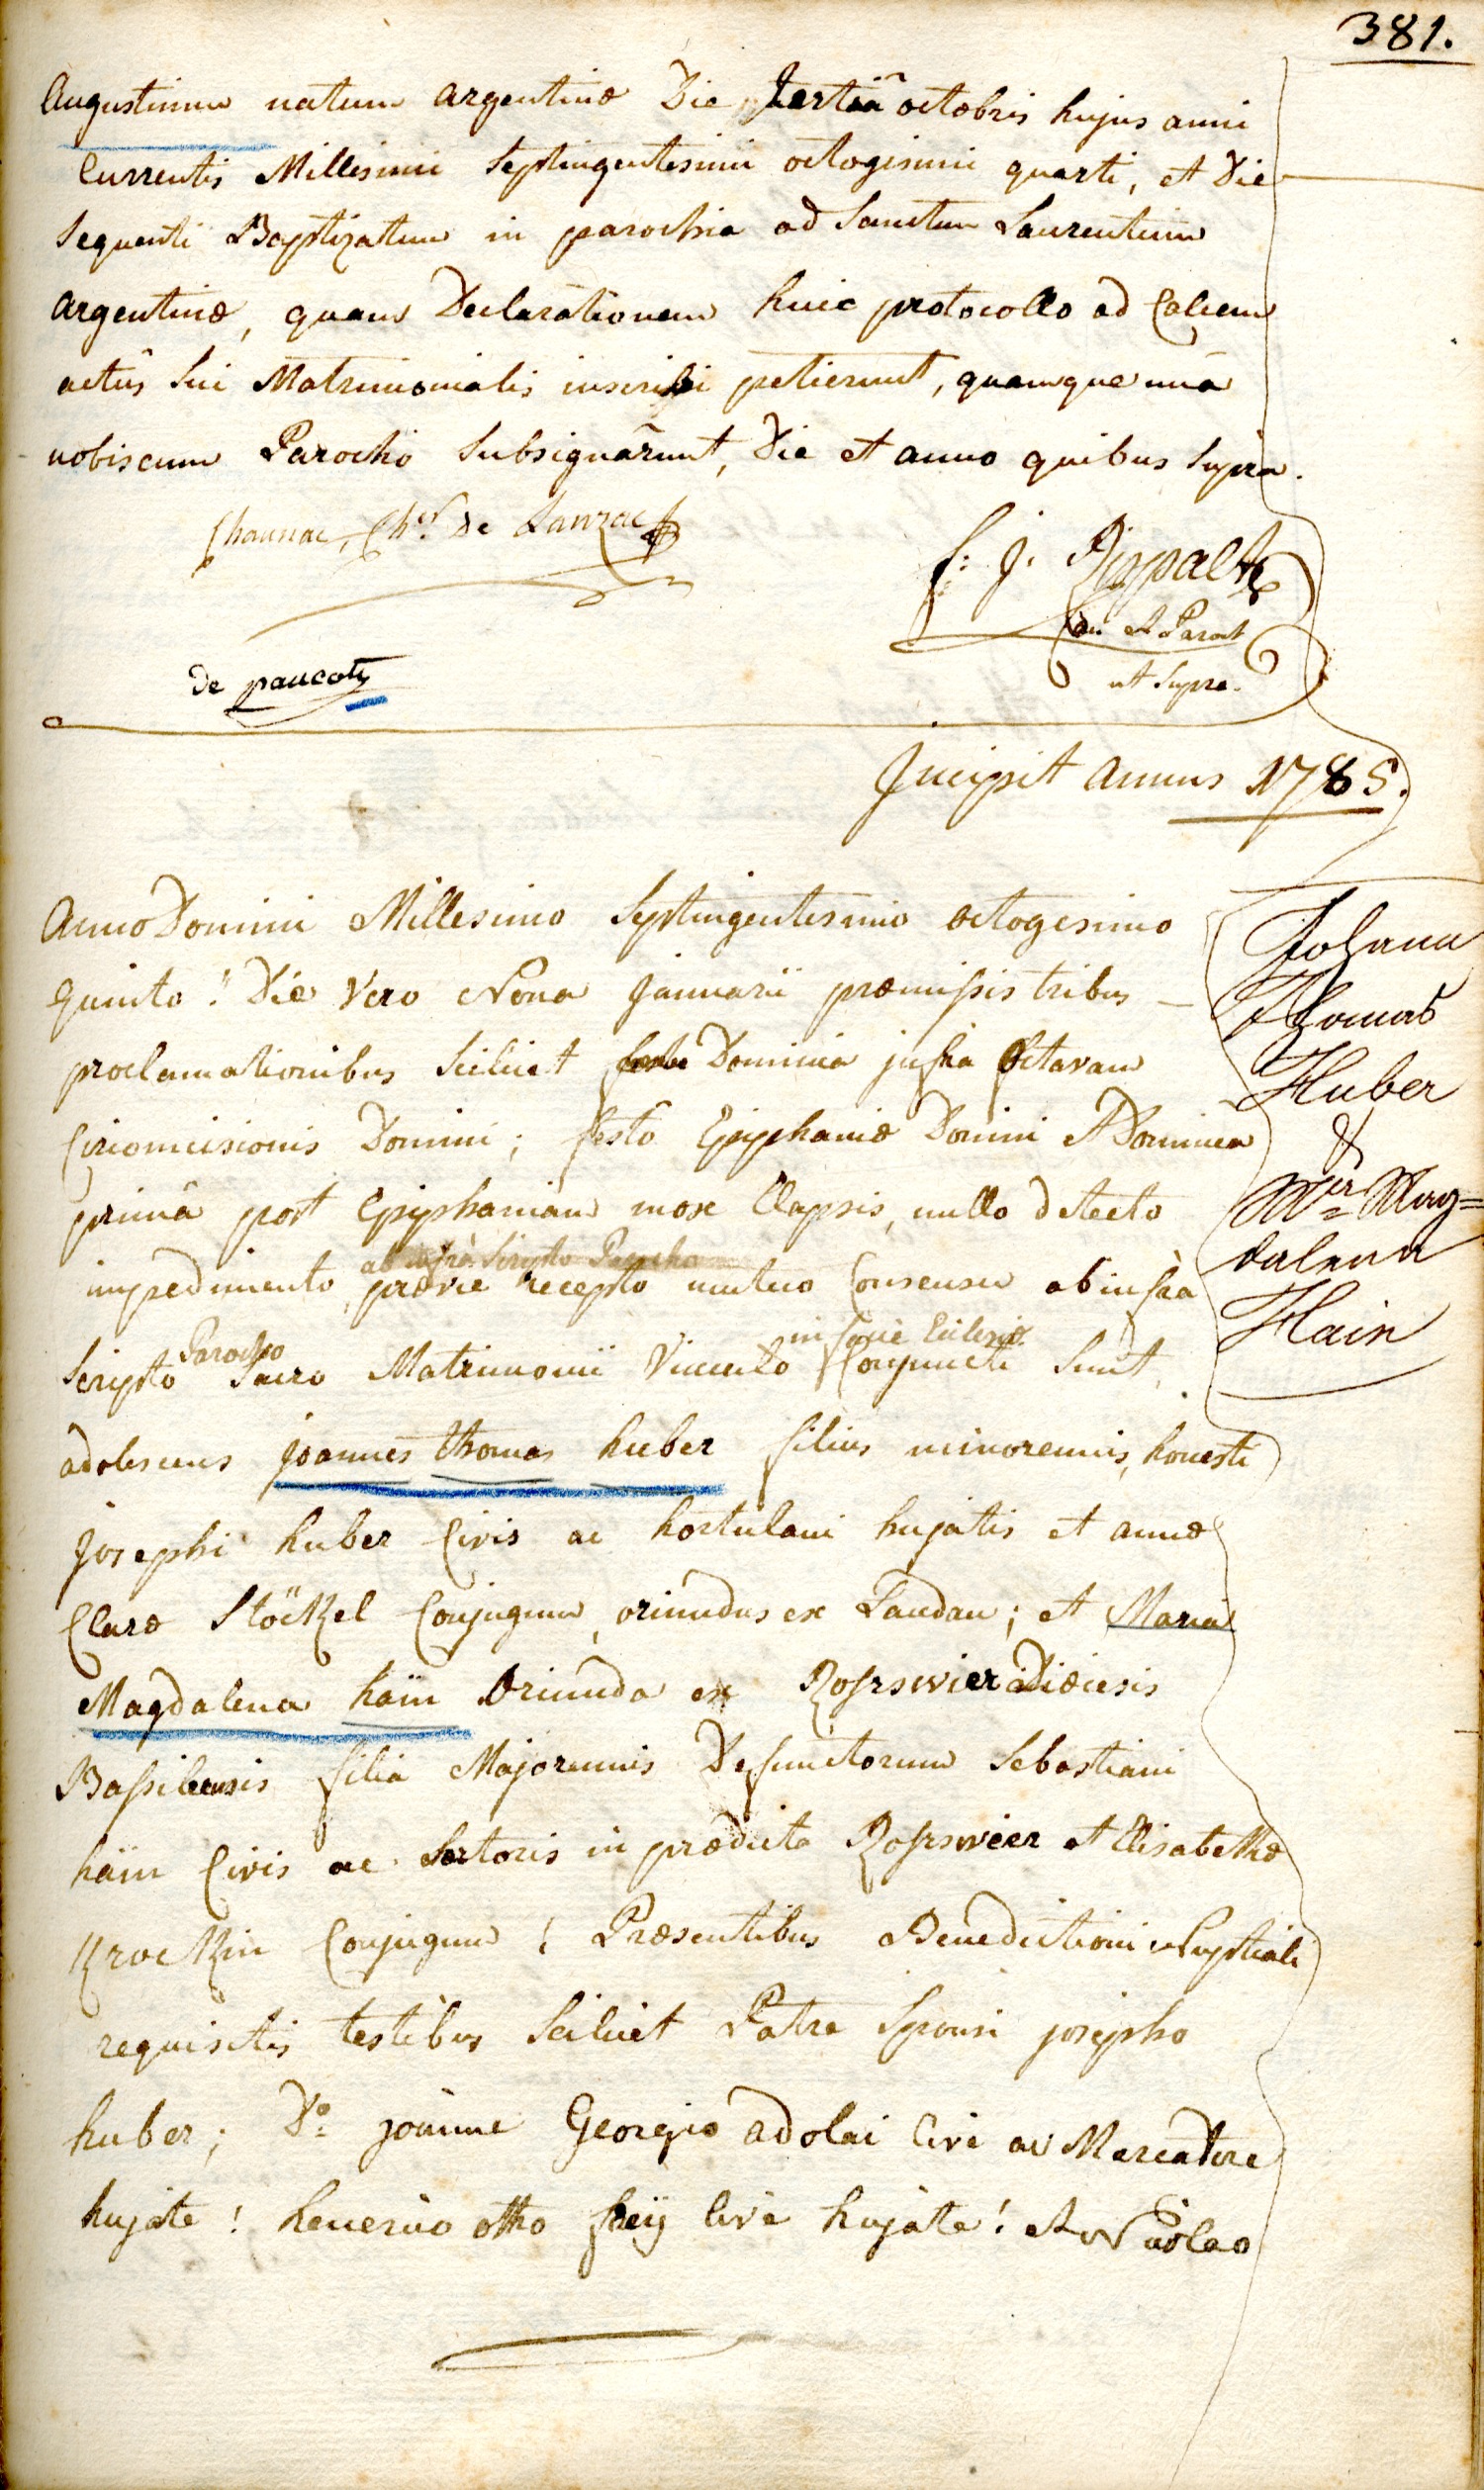 381.
Augustinum natum argentinæ Die Tertiâ octobris hujus anni
Currentis Millesimi Septingentesimi octogesimi quarti, et Die
Sequenti Baptizatum in parochia ad Sanctum Laurentium
argentinæ, quam Declarationem huic protocollo ad Calcem
actûs Sui Matrimonialis inscribi petierunt, quamque unâ
nobiscum Parocho Subsignârunt, Die et anno quibus Supra.
Chaunac, Ch.er De Lanzac
F: J. Rippalt
Can et Paroch
ut Supra.
de paucoty
Jncipit annus 1785.
Anno Domini Millesimo Septingentesimo octogesimo
quinto! Die Vero Nona Januarii præmissis tribus
proclamationibus Scilicet Dominica infra Octavam
Circumcisionis Domini; festô Epiphaniæ Domini et Dominica
primâ post Epiphaniam mox Elapsis, nullo detecto
impedimento, prævie recepto mutuo Consensu ab infra
Scripto Parocho Sacro Matrimonii Vinculo in facie Ecclesiæ Conjuncti Sunt,
adolescens joannes thomas huber filius minorennis, honesti
josephi huber Civis ac hortulani hujatis et annæ
Claræ Stöckel Conjugum, oriundus ex Landau; et Maria
Magdalena haïn Oriunda ex Rosrswier Diœcesis
Basileensis filia Majorennis Defunctorum Sebastiani
haïn Civis ac Sartoris in prædicto Rosrsweier et Elisabethæ
Krockin Conjugum! Præsentibus Benedictioni Nuptiali
requisitis testibus Scilicet Patre Sponsi josepho
huber; D.o joanne Georgio adolai Cive ac Mercatore
hujate! henerico otho Cive hujate! et Nicolao
Johann
Thomas
Huber
&
M.ar Mag=
dalena
Hain